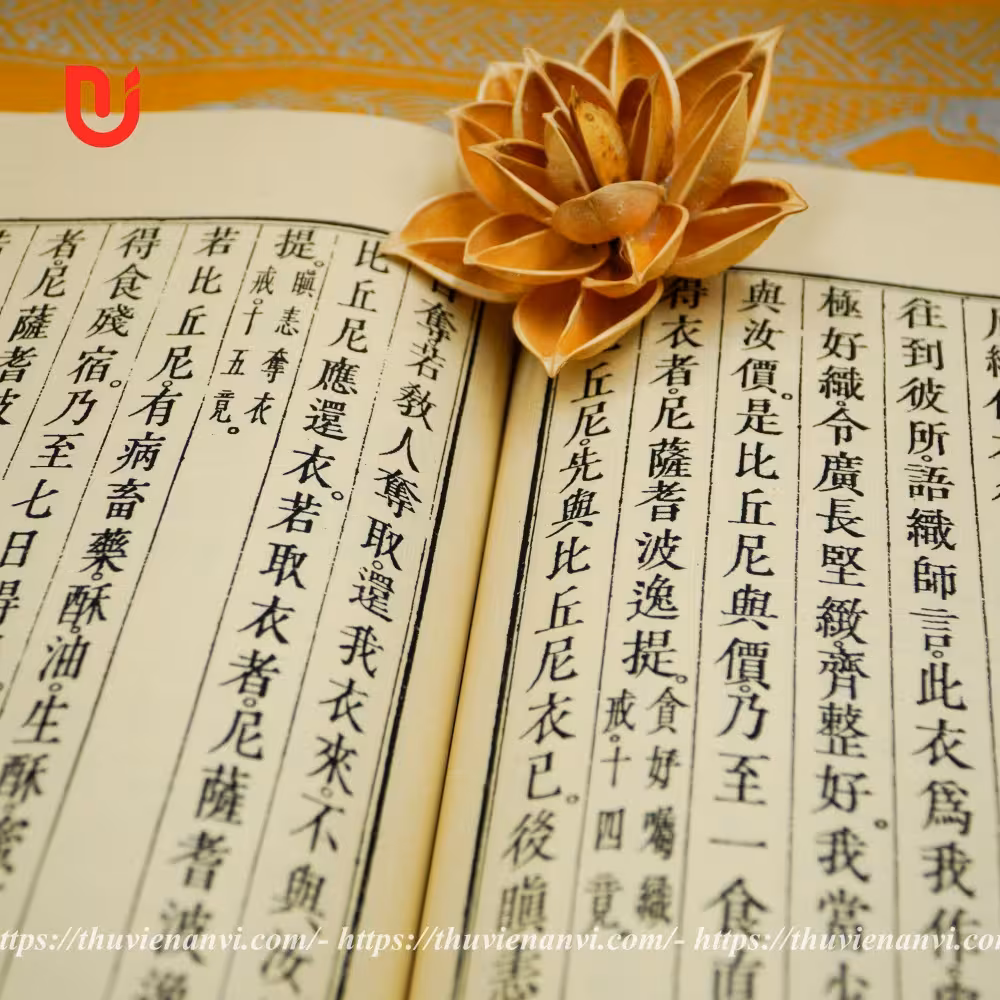 往到彼所。語織師言。此衣爲我作。
極好織。令廣長堅緻。齊整好。我當少
與汝價。是比丘尼與價。乃至一食直
得衣者。尼薩耆波逸提。
貪好囑織
戒。十四竟
丘尼。先與比丘尼衣已。後瞋恚
奪。若教人奪取。還我衣來。不與汝
比丘尼應還衣。若取衣者。尼薩耆波逸
提。
瞋恚奪衣
戒。十五竟。
若比丘尼。有病畜藥。酥。油。生酥。蜜
得食殘宿。乃至七日得
者。尼薩耆波
https://thuvienanvi.com/- https://thuvienanvi.com/- https://thuvienanvi.com/